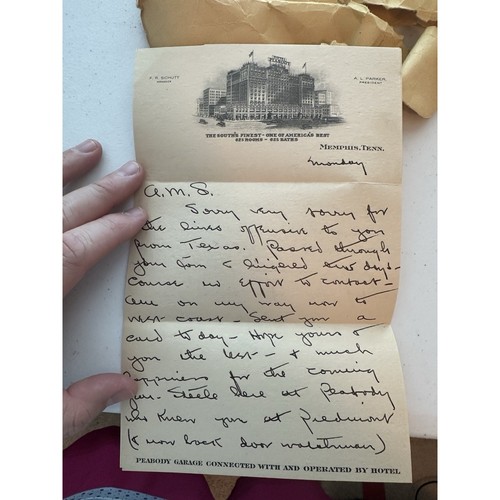 HOTEL PEABODY
F. R. SCHUTT
A. L. PARKER,
PRESIDENT
THE SOUTH'S FINEST - ONE OF AMERICA'S BEST
625 ROOMS - 625 BATHS
MEMPHIS, TENN.
Monday
A.M.S.
Sorry very sorry for
the lines offensive to you
from Texas. Passed through
your town & lingered few days -
course no effort to contact -
am on my way now to
west coast - Sent you a
card to day - Hope yours &
you the best - & much
happiness for the coming
year. Steele here at Peabody
was knew you at Piedmont
(& now back door watchman)
PEABODY GARAGE CONNECTED WITH AND OPERATED BY HOTEL